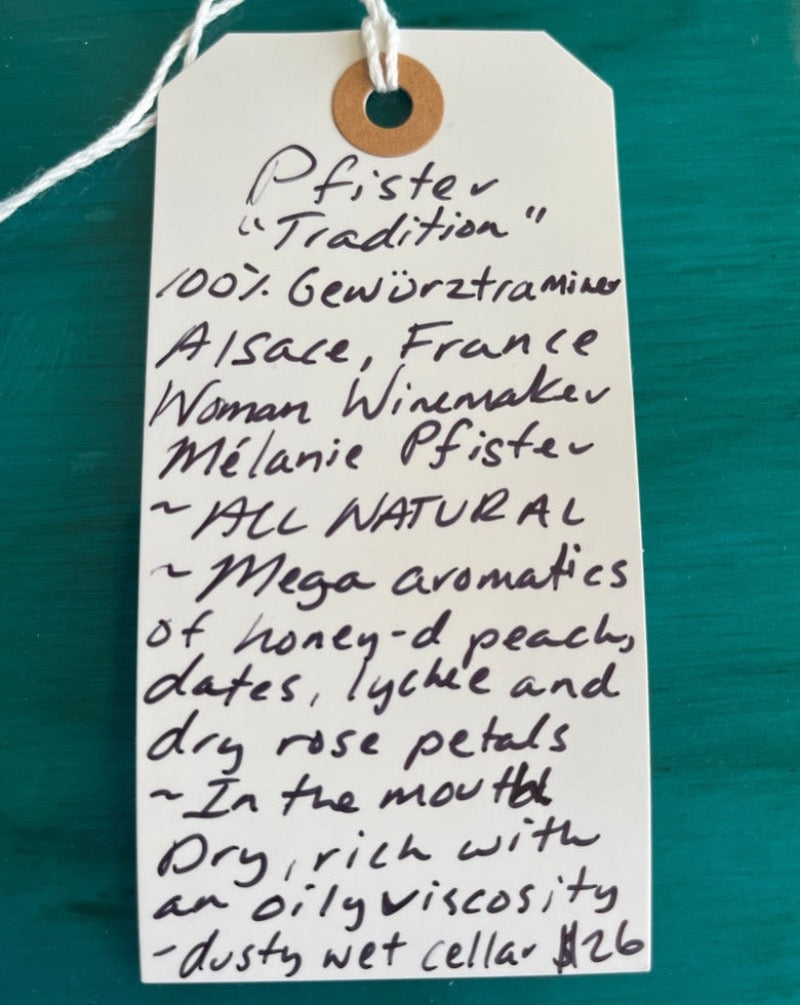 Pfister
"Tradition"
100% Gewürztraminer
Alsace, France
Woman Winemaker
Mélanie Pfister
~ ALL NATURAL
~ Mega aromatics
of honey-d peach,
dates, lychee and
dry rose petals
~ In the mouth
Dry, rich with
an oily viscosity
- dusty wet cellar $26